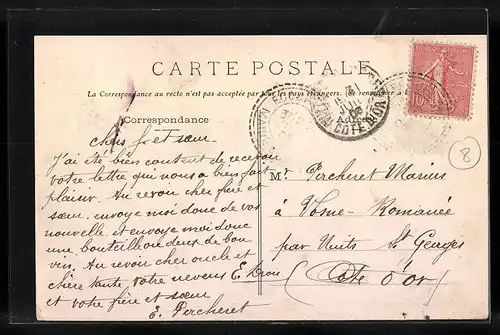 CARTE POSTALE
La Correspondance au recto n'est pas acceptée par tous les pays étrangers. (Se renseigner à
Correspondance
Adresse
CÔTE-D'OR
10
8
Chers f et sœur
J'ai été bien content de recevoir
votre lettre qui nous a bien fait
plaisir. Au revoir cher frère et
sœur envoye moi donc de vos
nouvelle et envoye moi donc
une bouteill ou deux de bon
vin. Au revoir cher oncle et
chère tante votre neveus E.
et votre frère et sœur
E. Percheret
Mr Percheret Marius
à Vosne-Romanée
par Nuits St Georges
(Côte d'or)